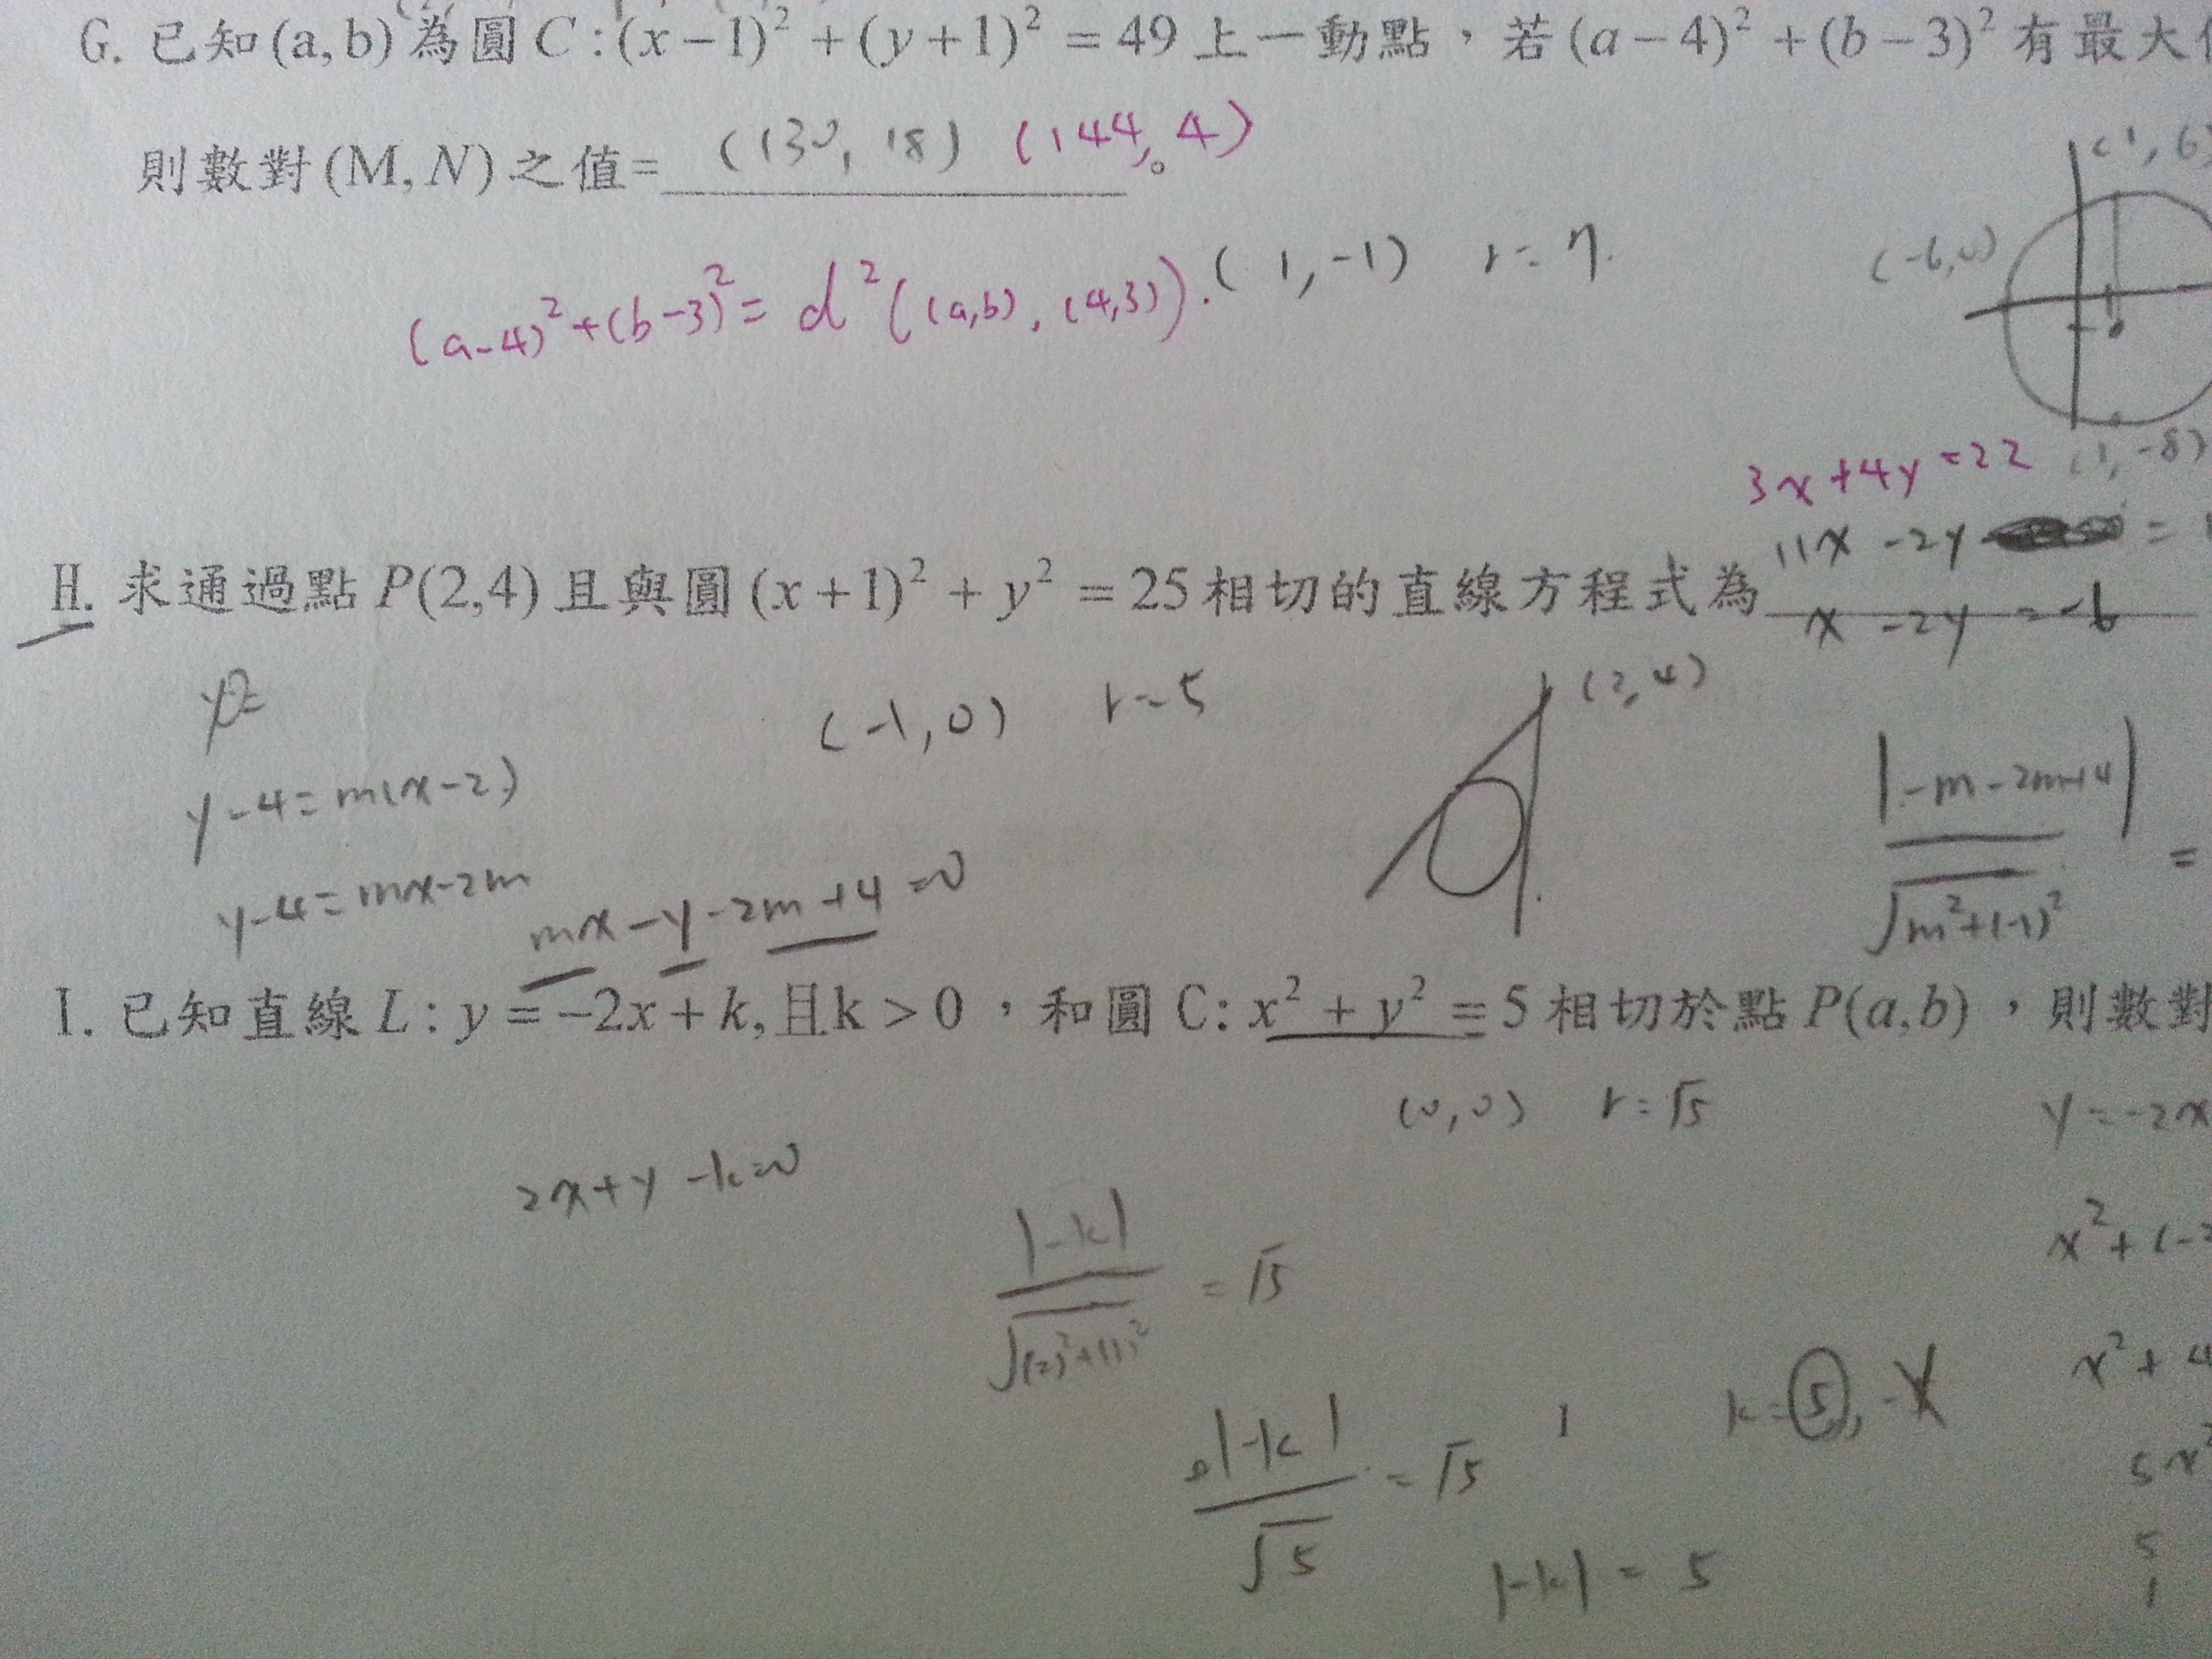 G. 已知(a,b)為圓C:(x-1)²+(y+1)²=49上一動點，若(a-4)²+(b-3)²有最大
(1,6)
則數對(M,N)之值= (130, 18) (144, 4)。
(-6,0)
(a-4)²+(b-3)²= d²((a,b), (4,3)). (1,-1) r=7.
(1,-8)
3x+4y=22
11x-2y =
H. 求通過點P(2,4)且與圓(x+1)²+y²=25相切的直線方程式為
x-2y=-6
(-1,0) r=5
(2,4)
y-4=m(x-2)
|-m-2m+4|
y-4=mx-2m
mx-y-2m+4=0
√m²+(-1)² =
I. 已知直線L:y=-2x+k,且k>0，和圓C:x²+y²=5相切於點P(a,b)，則數對
(0,0) r=√5
y=-2x
2x+y-k=0
|-k|
√(2)²+(1)² =√5
x²+(-2
x²+4
|-k|
√5 =√5
k=5,
5x²
|-k|=5
5
1